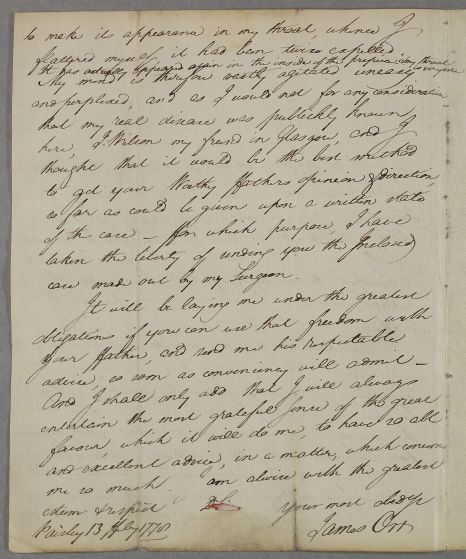 to make it appearance in my throat, whence I
flattered myself it had been twice expelled
It has actually appeared again in the inside of the prepuce in my throat
My mind is therefore vastly agitated uneasy
and perplexed, and as I would not for any consideration
that my real disease was publickly known
here, J. Wilson my friend in Glasgow, and I
thought that it would be the best method
to get your Worthy ffathers opinion & direction
so far as could be given upon a written state
of the case – ffor which purpose, I have
taken the liberty of sending you the Inclosed
case made out by my Surgeon.
It will be laying me under the greatest
obligations if you can use that freedom with
your ffather, and send me his respectable
advice, as soon as conveniency will admit –
And I shall only add that I will always
entertain the most grateful sense of the great
favour, which it will do me, to have so able
and excellent advice, in a matter, which concerns
me so much. I am alwise with the greatest
esteem & respect
Sir
your most obedt
Paisley 13 ffeby
James Orr